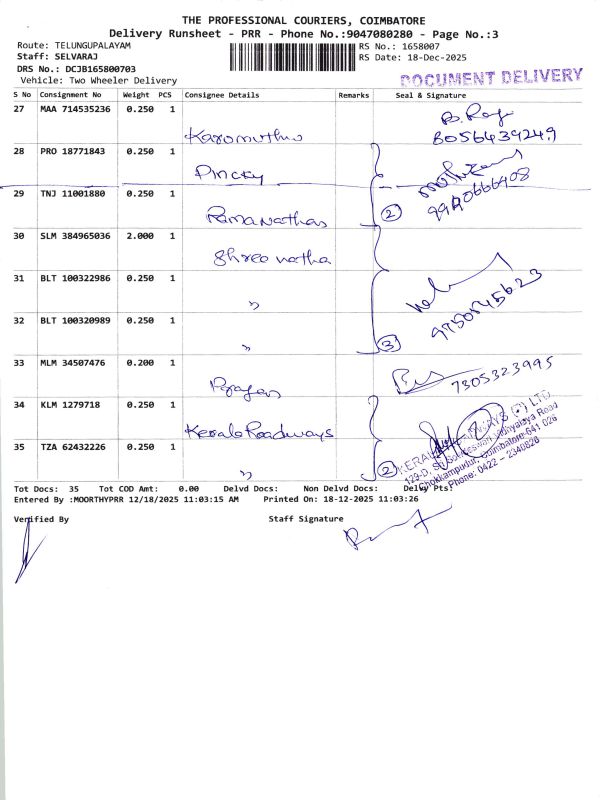 THE PROFESSIONAL COURIERS, COIMBATORE
Delivery Runsheet - PRR - Phone No.:9047080280 - Page No.:3
Route: TELUNGUPALAYAM RS No.: 1658007
Staff: SELVARAJ RS Date: 18-Dec-2025
DRS No.: DCJB165800703
Vehicle: Two Wheeler Delivery DOCUMENT DELIVERY
S No Consignment No Weight PCS Consignee Details Remarks Seal & Signature
27 MAA 714535236 0.250 1
Karumuthu 8056439249
28 PRO 18771843 0.250 1
Pincky
29 TNJ 11001880 0.250 1
Ramanathan 2
30 SLM 384965036 2.000 1
Shree natha
31 BLT 100322986 0.250 1
"
32 BLT 100320989 0.250 1
" 3
33 MLM 34507476 0.200 1
7305323995
34 KLM 1279718 0.250 1
Kerala Roadways
35 TZA 62432226 0.250 1
" 2
KERALA ROADWAYS (P) LTD
Chokkampudur, Coimbatore-641 026
Phone: 0422 - 2340826
Tot Docs: 35 Tot COD Amt: 0.00 Delvd Docs: Non Delvd Docs: Delvy Pts:
Entered By :MOORTHYPRR 12/18/2025 11:03:15 AM Printed On: 18-12-2025 11:03:26
Verified By Staff Signature